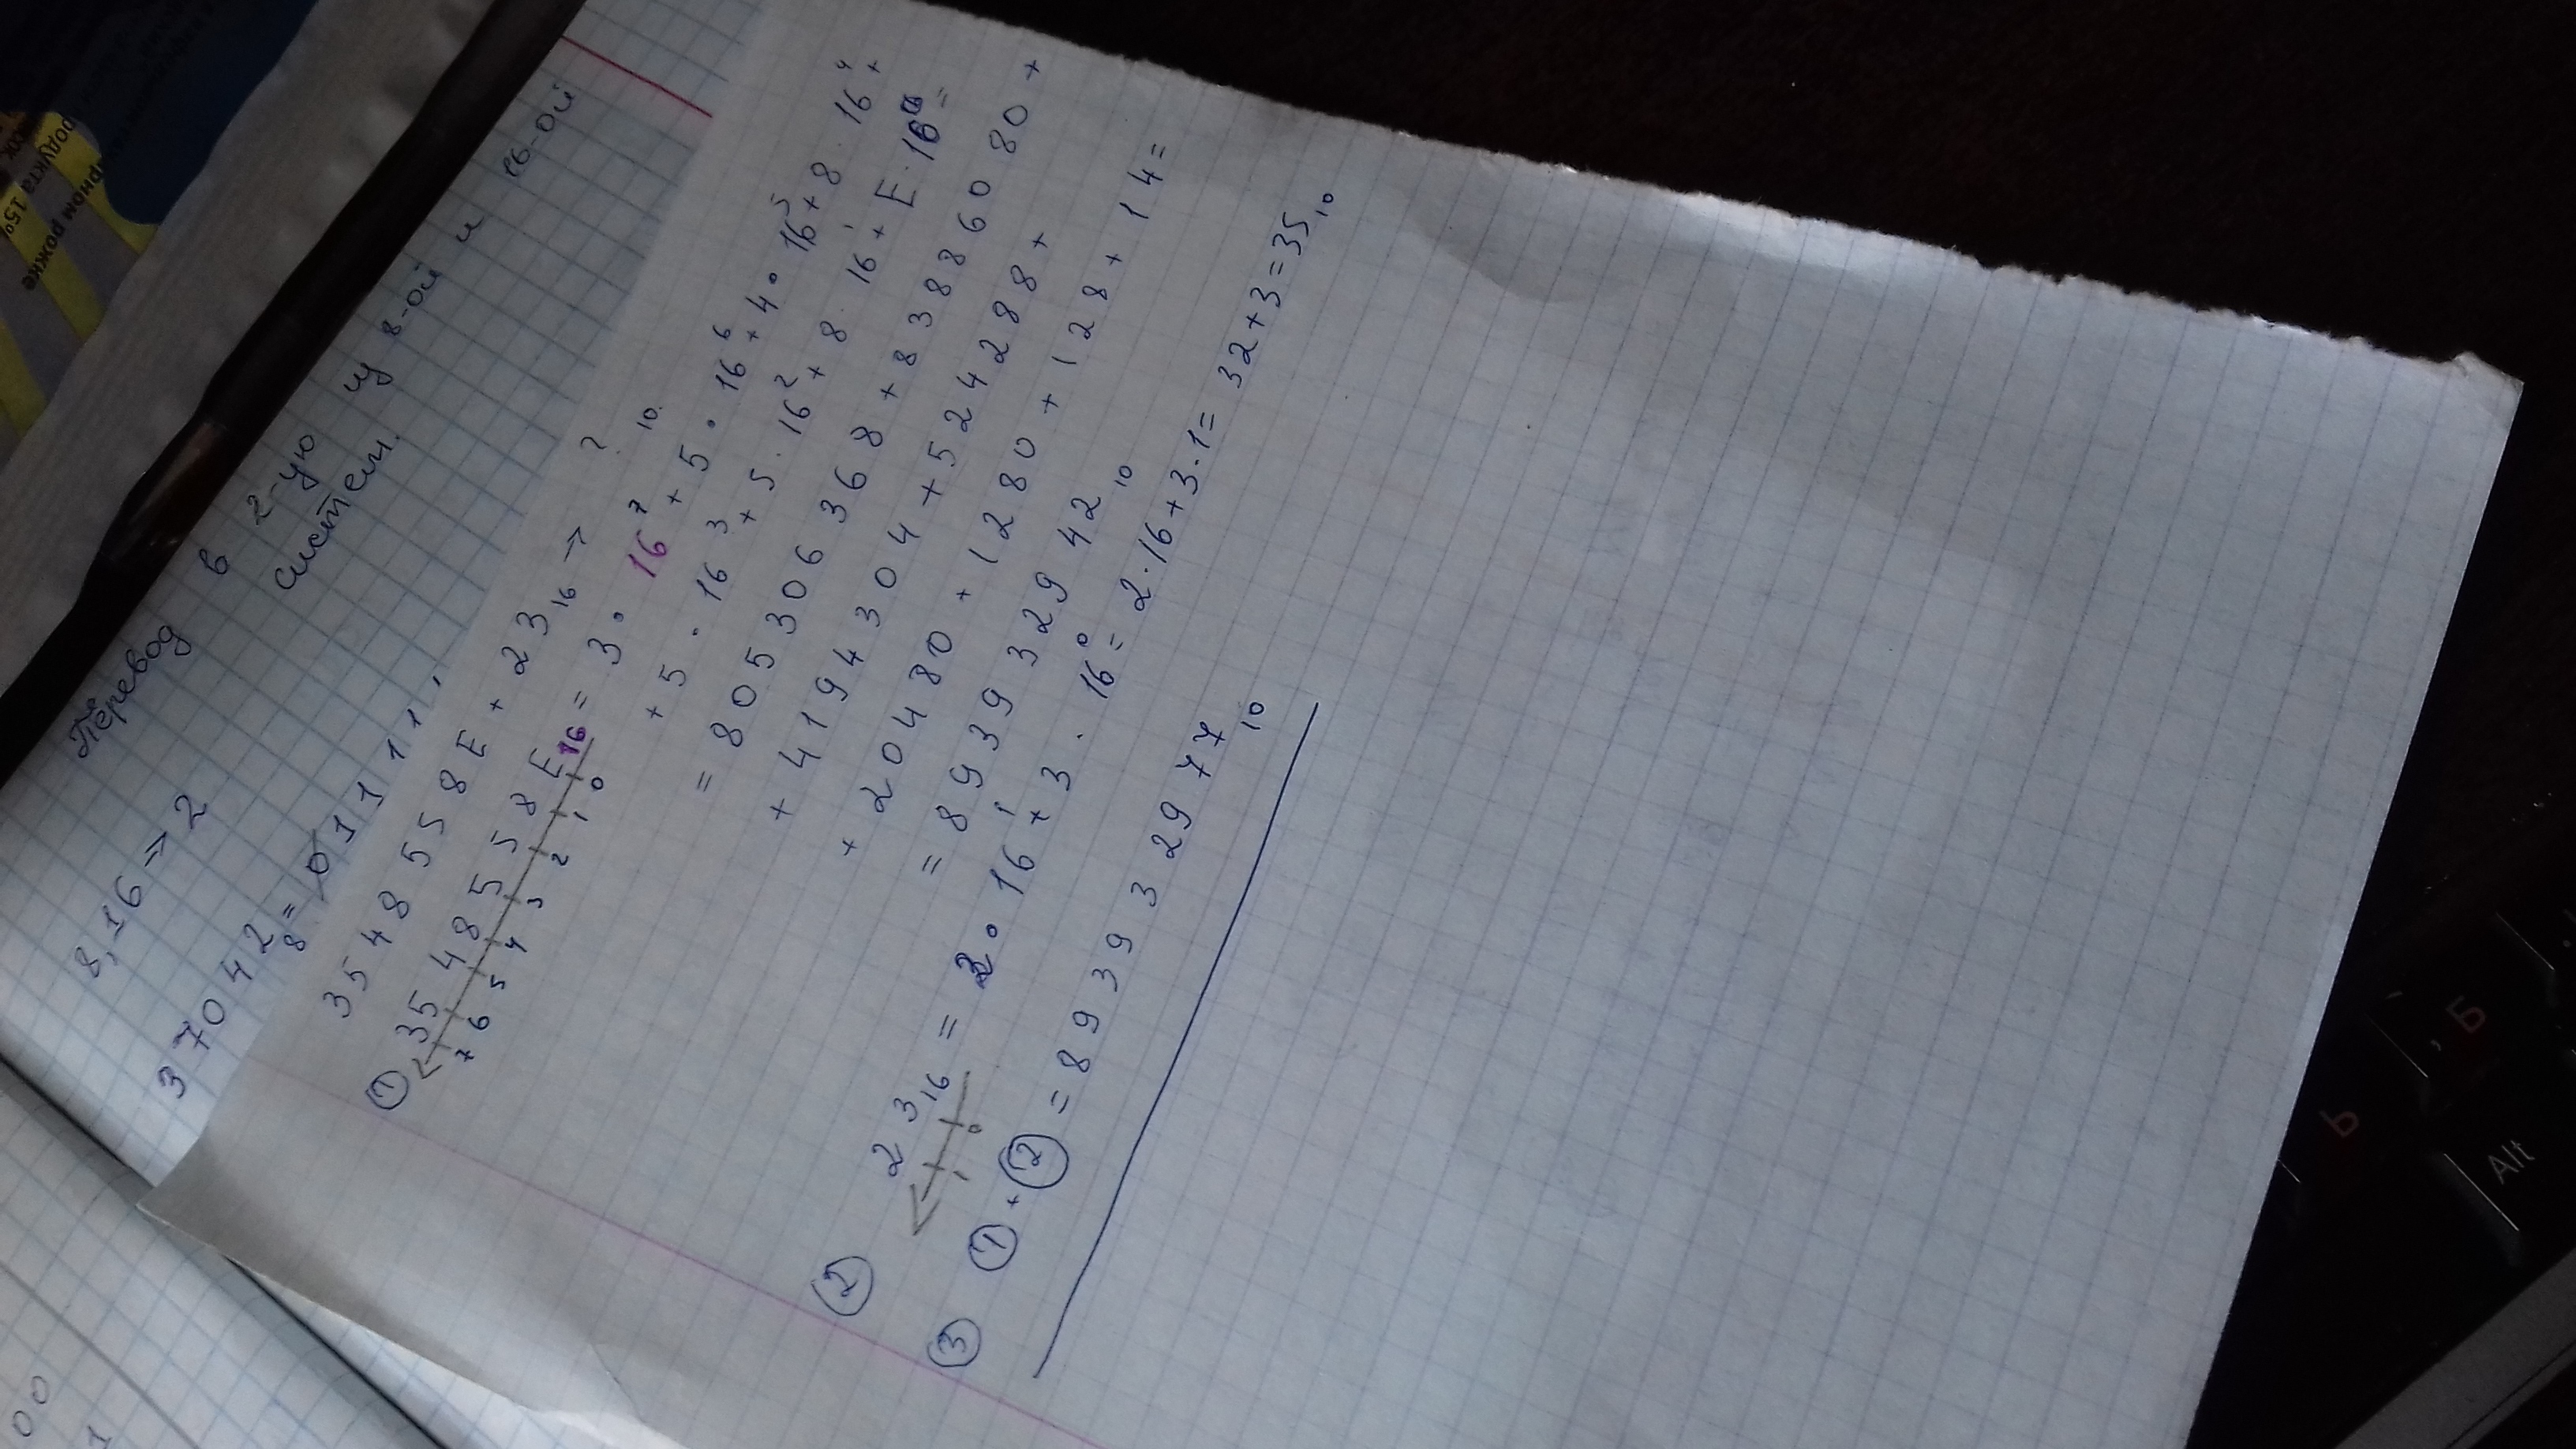 Перевод в 2-ую из 8-ой и 16-ой
систем.
8,16 → 2
37042₈ = 011111,
3548558E + 23₁₆ → ?₁₀.
① 3548558E₁₆ = 3 · 16⁷ + 5 · 16⁶ + 4 · 16⁵ + 8 · 16⁴ +
7 6 5 4 3 2 1 0
+ 5 · 16³ + 5 · 16² + 8 · 16¹ + E · 16⁰ =
= 805306368 + 83886080 +
+ 4194304 + 524288 +
+ 20480 + 1280 + 128 + 14 =
= 893932942₁₀
② 23₁₆ = 2 · 16¹ + 3 · 16⁰ = 2 · 16 + 3 · 1 = 32 + 3 = 35₁₀
1 0
③ ① + ② = 893932977₁₀
00
1
родукта
15%
рном рожке
Alt
Ь
, Б